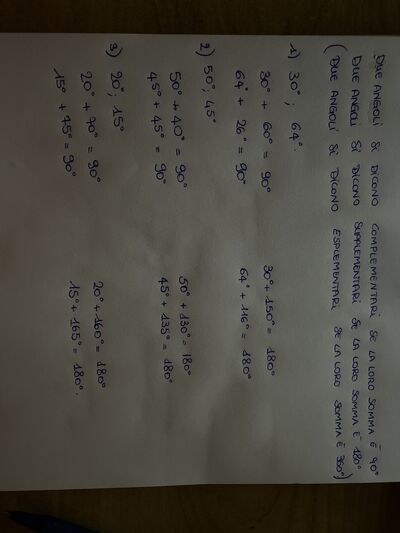 DUE ANGOLI SI DICONO COMPLEMENTARI SE LA LORO SOMMA È 90°
DUE ANGOLI SI DICONO SUPPLEMENTARI SE LA LORO SOMMA È 180°
(DUE ANGOLI SI DICONO ESPLEMENTARI SE LA LORO SOMMA È 360°)
1) 30° ; 64°.
30° + 60° = 90° 30° + 150° = 180°
64° + 26° = 90° 64° + 116° = 180°
2) 50° ; 45°
50° + 40° = 90° 50° + 130° = 180°
45° + 45° = 90° 45° + 135° = 180°
3) 20° ; 15°
20° + 70° = 90° 20° + 160° = 180°
15° + 75° = 90° 15° + 165° = 180°.